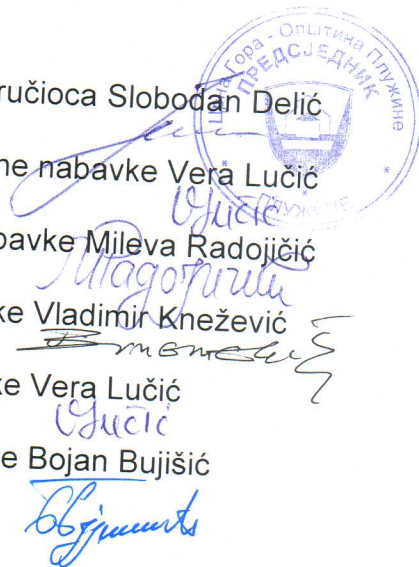 Црна Гора - Општина Плужине
ПРЕДСЈЕДНИК
ПЛУЖИНЕ
ručioca Slobodan Delić
ne nabavke Vera Lučić
VLučić
bavke Mileva Radojičić
МРадојичић
ke Vladimir Knežević
ke Vera Lučić
VLučić
e Bojan Bujišić